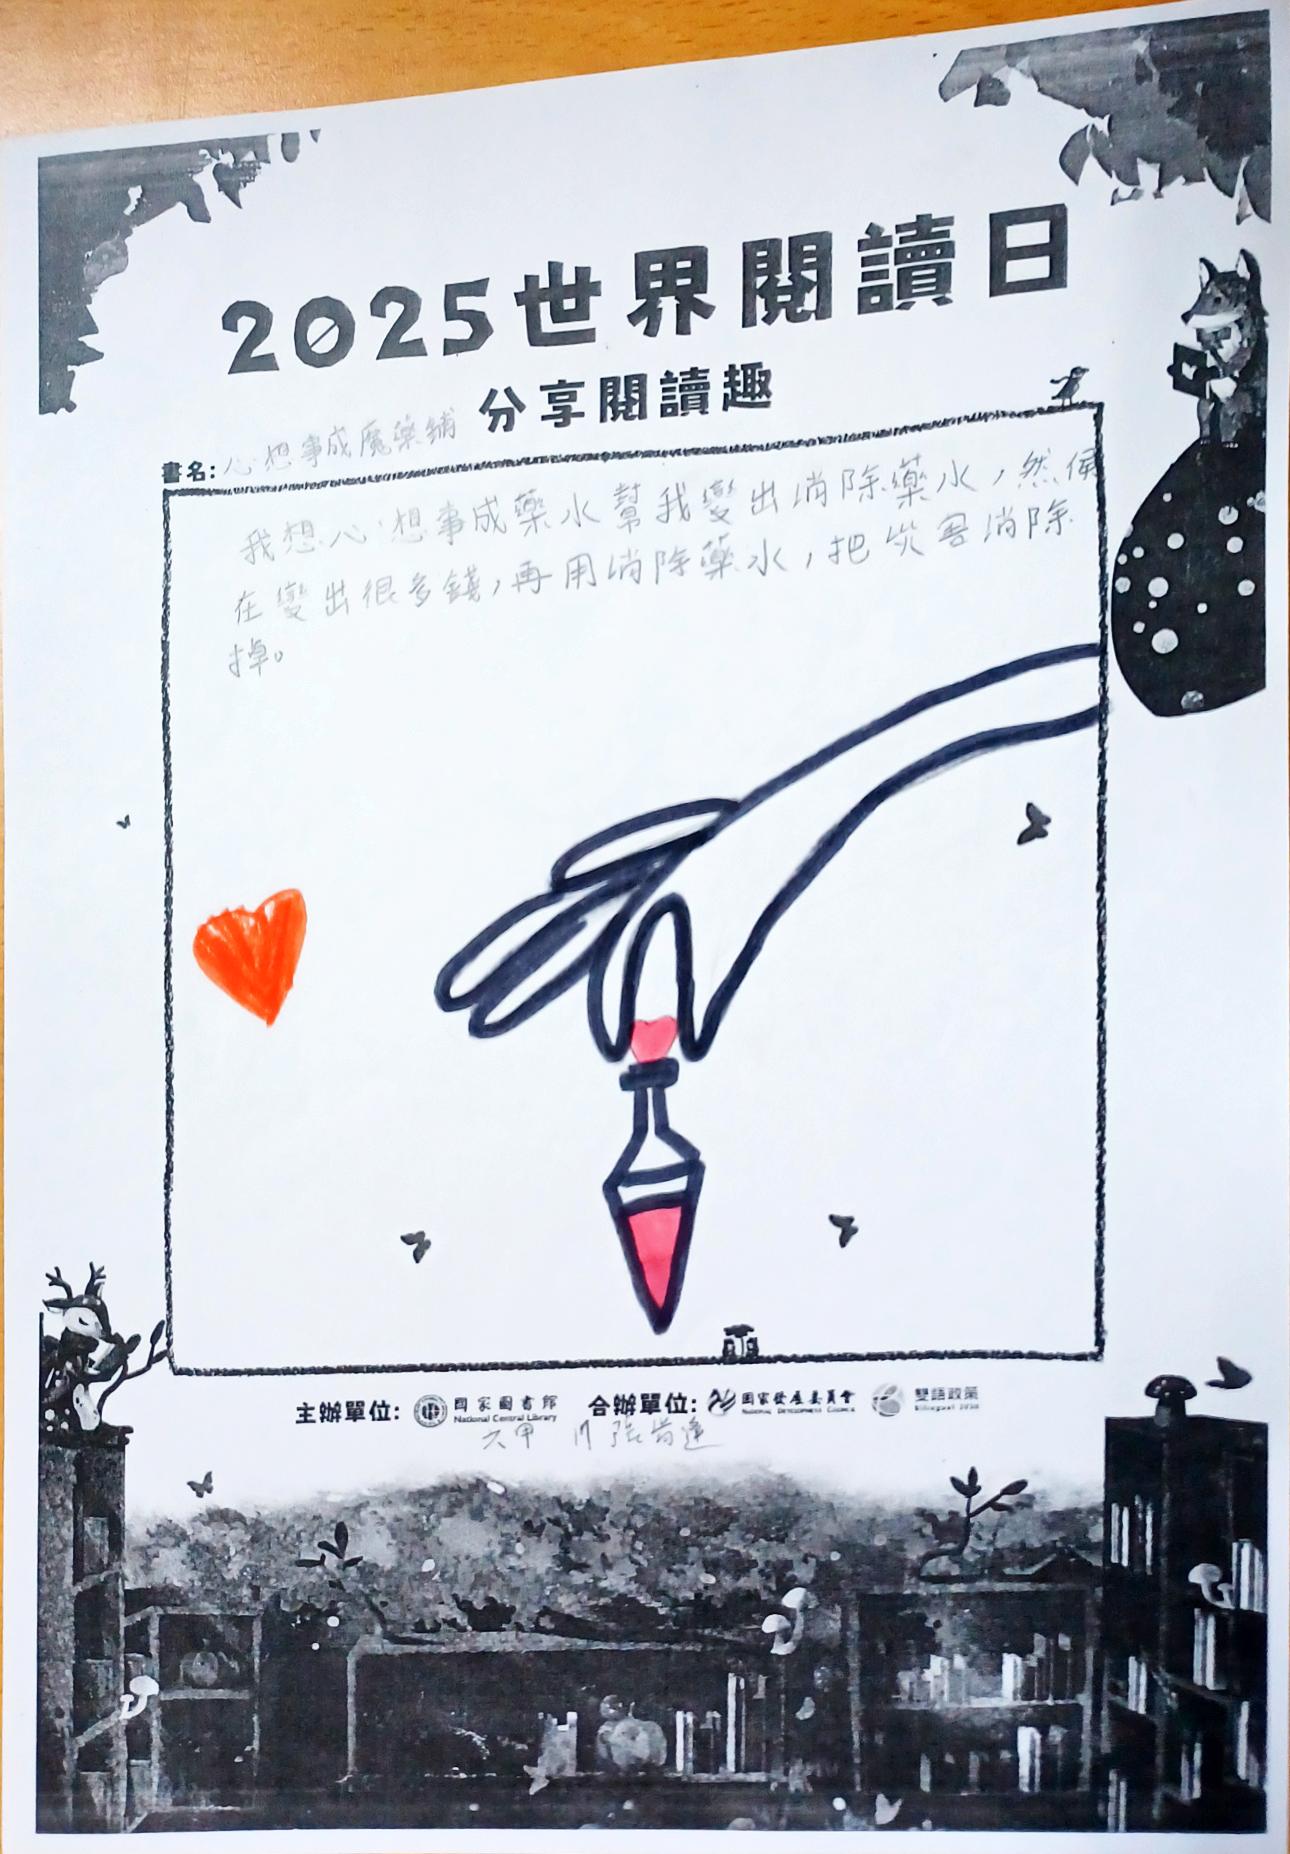 2025世界閱讀日
分享閱讀趣
書名:心想事成魔藥鋪
我想心想事成藥水幫我變出消除藥水,然侯
在變出很多錢,再用消除藥水,把災害消除
掉。
主辦單位: 國家圖書館 合辦單位: 國家發展委員會 雙語政策
National Central Library NATIONAL DEVELOPMENT COUNCIL Bilingual 2030
六甲 11 張